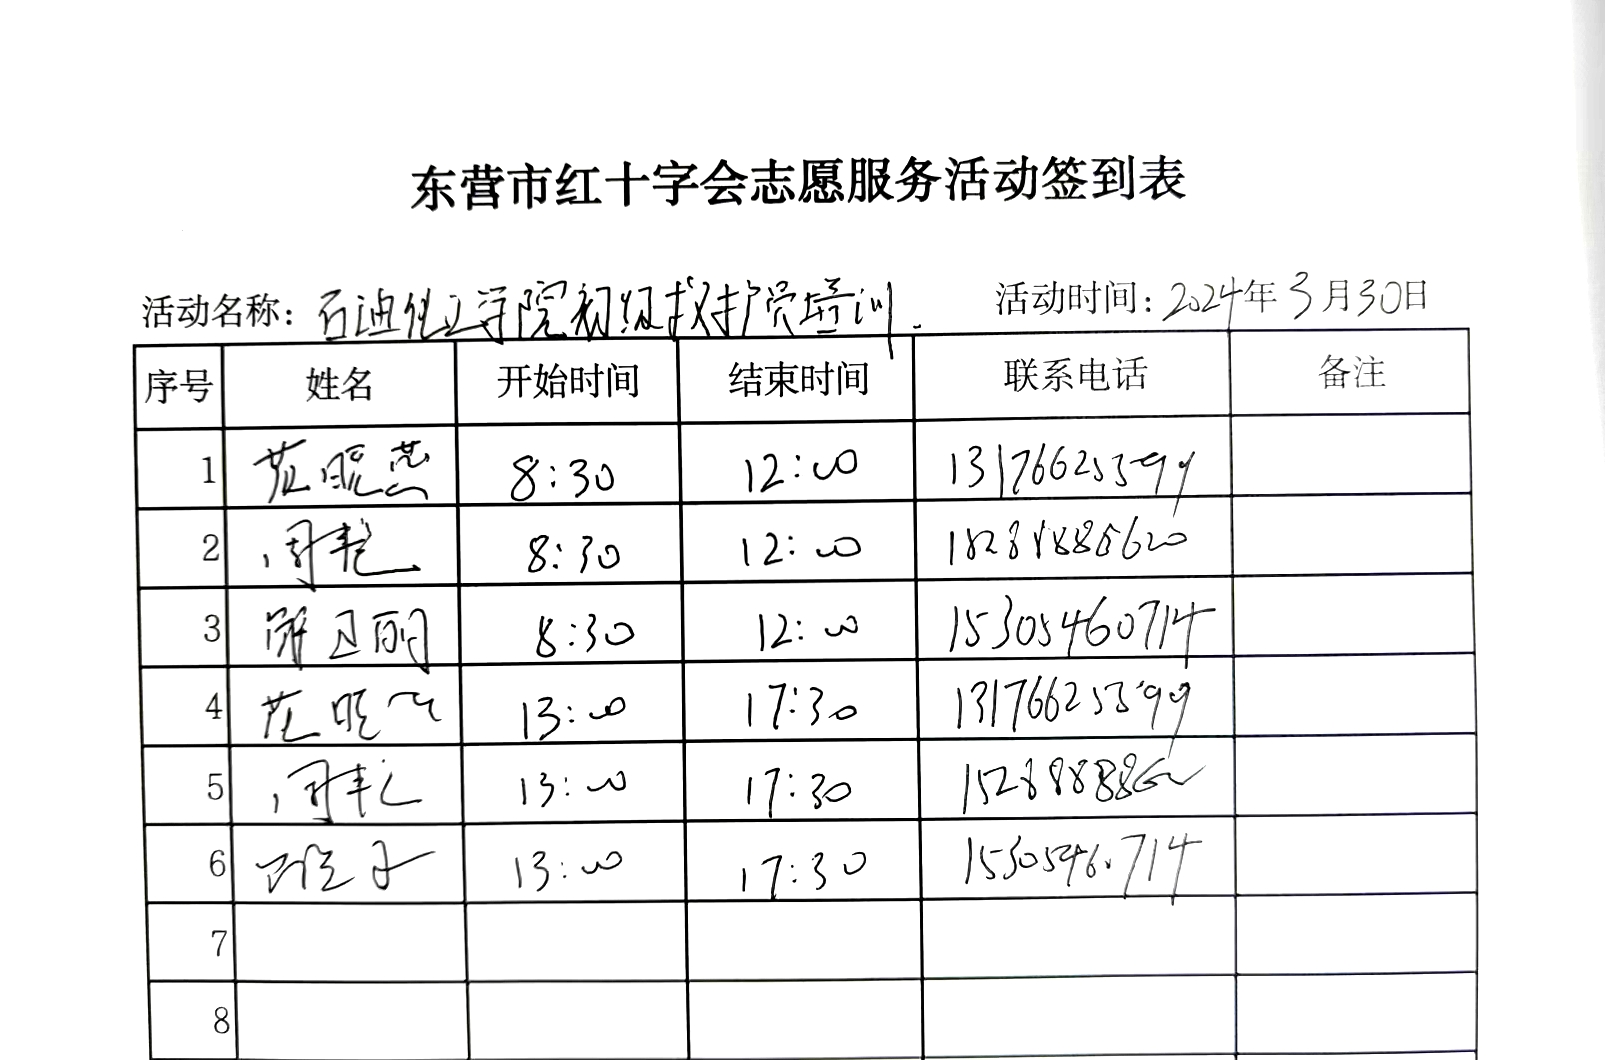 东营市红十字会志愿服务活动签到表
活动名称: 石油化工学院初级救护员培训. 活动时间: 2024年3月30日
序号 姓名 开始时间 结束时间 联系电话 备注
1 范晓燕 8:30 12:00 13176625399
2 周艳 8:30 12:00 15288888620
3 8:30 12:00 15305460714
4 范晓 13:00 17:30 13176625399
5 周艳 13:00 17:30
6 13:00 17:30 15305460714
7
8